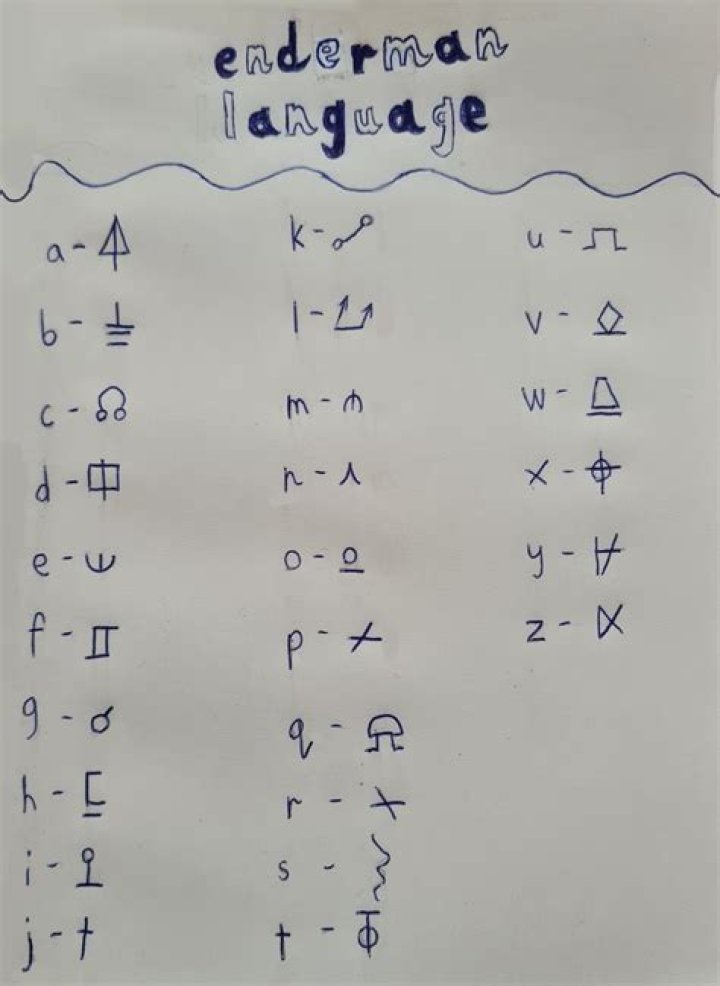 enderman
language
a -
b -
c -
d -
e -
f -
g -
h -
i -
j -
k -
l -
m -
n -
o -
p -
q -
r -
s -
t -
u -
v -
w -
x -
y -
z -